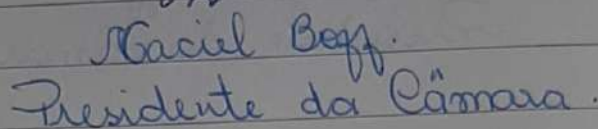 Maciel Beff.
Presidente da Câmara.